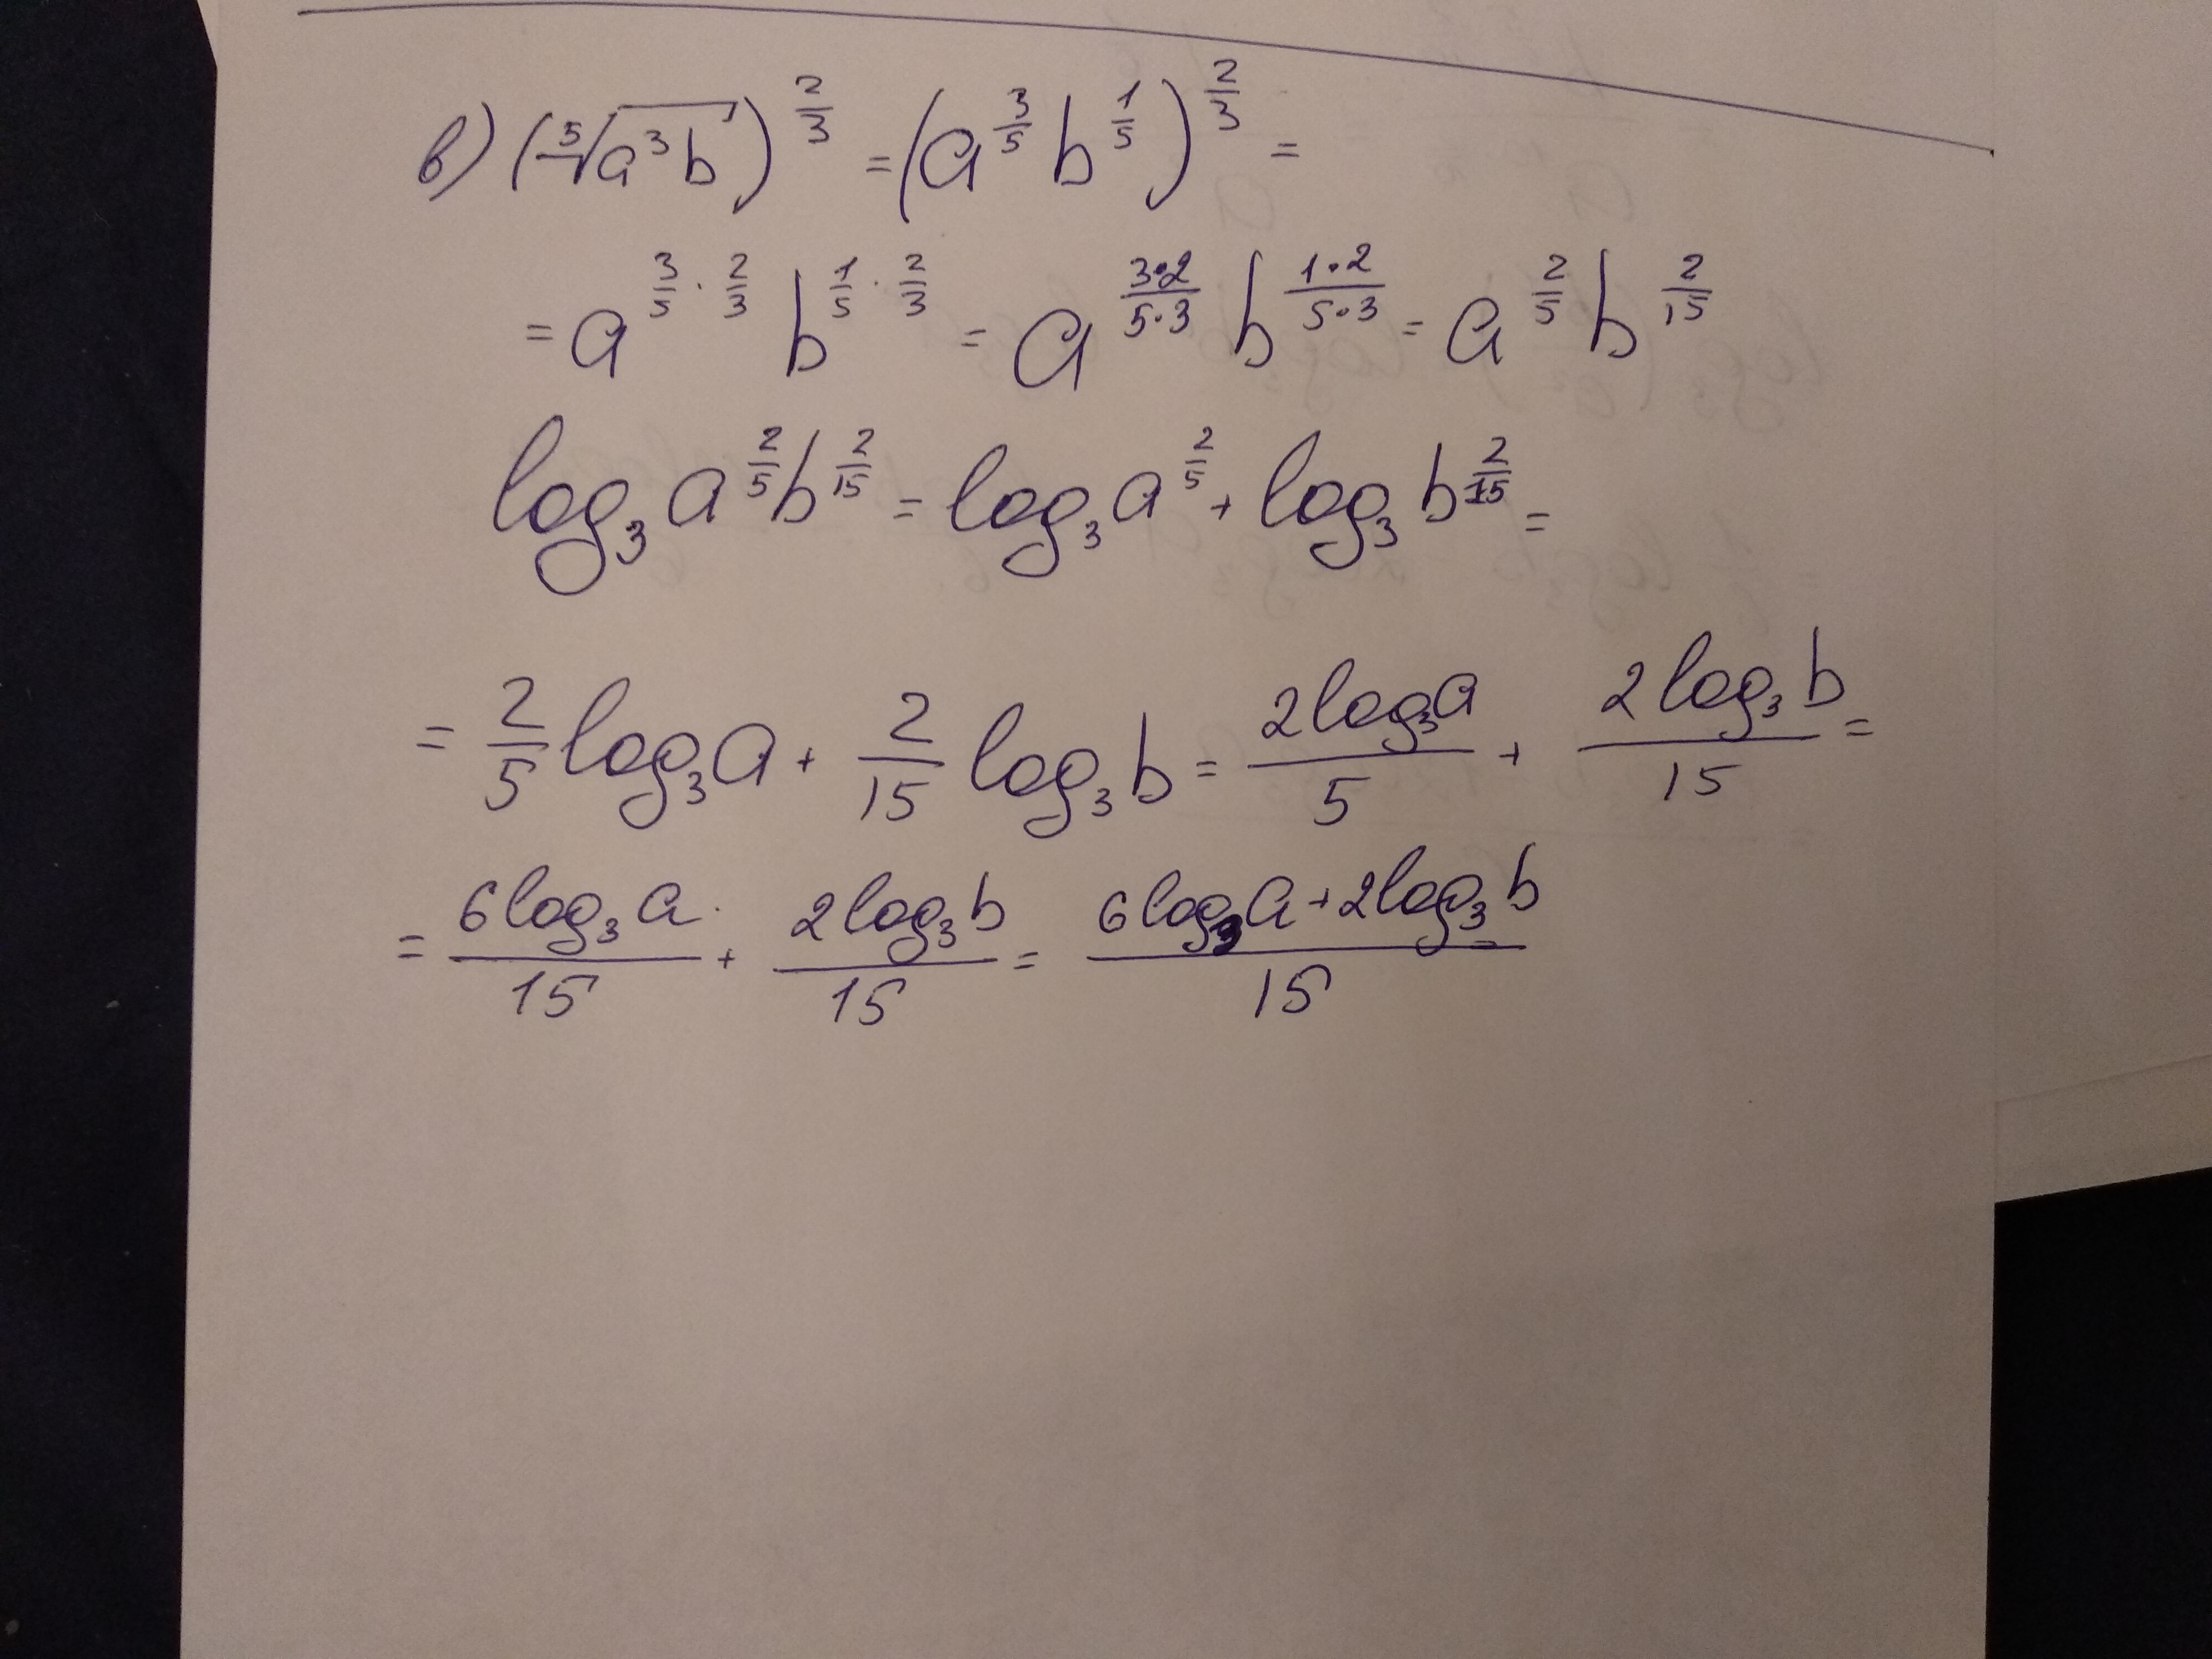 в) (⁵√(a³b))^(2/3) = (a^(3/5) b^(1/5))^(2/3) =
= a^(3/5 · 2/3) b^(1/5 · 2/3) = a^((3·2)/(5·3)) b^((1·2)/(5·3)) = a^(2/5) b^(2/15)
log₃ a^(2/5) b^(2/15) = log₃ a^(2/5) + log₃ b^(2/15) =
= 2/5 log₃ a + 2/15 log₃ b = (2 log₃ a)/5 + (2 log₃ b)/15 =
= (6 log₃ a)/15 + (2 log₃ b)/15 = (6 log₃ a + 2 log₃ b)/15